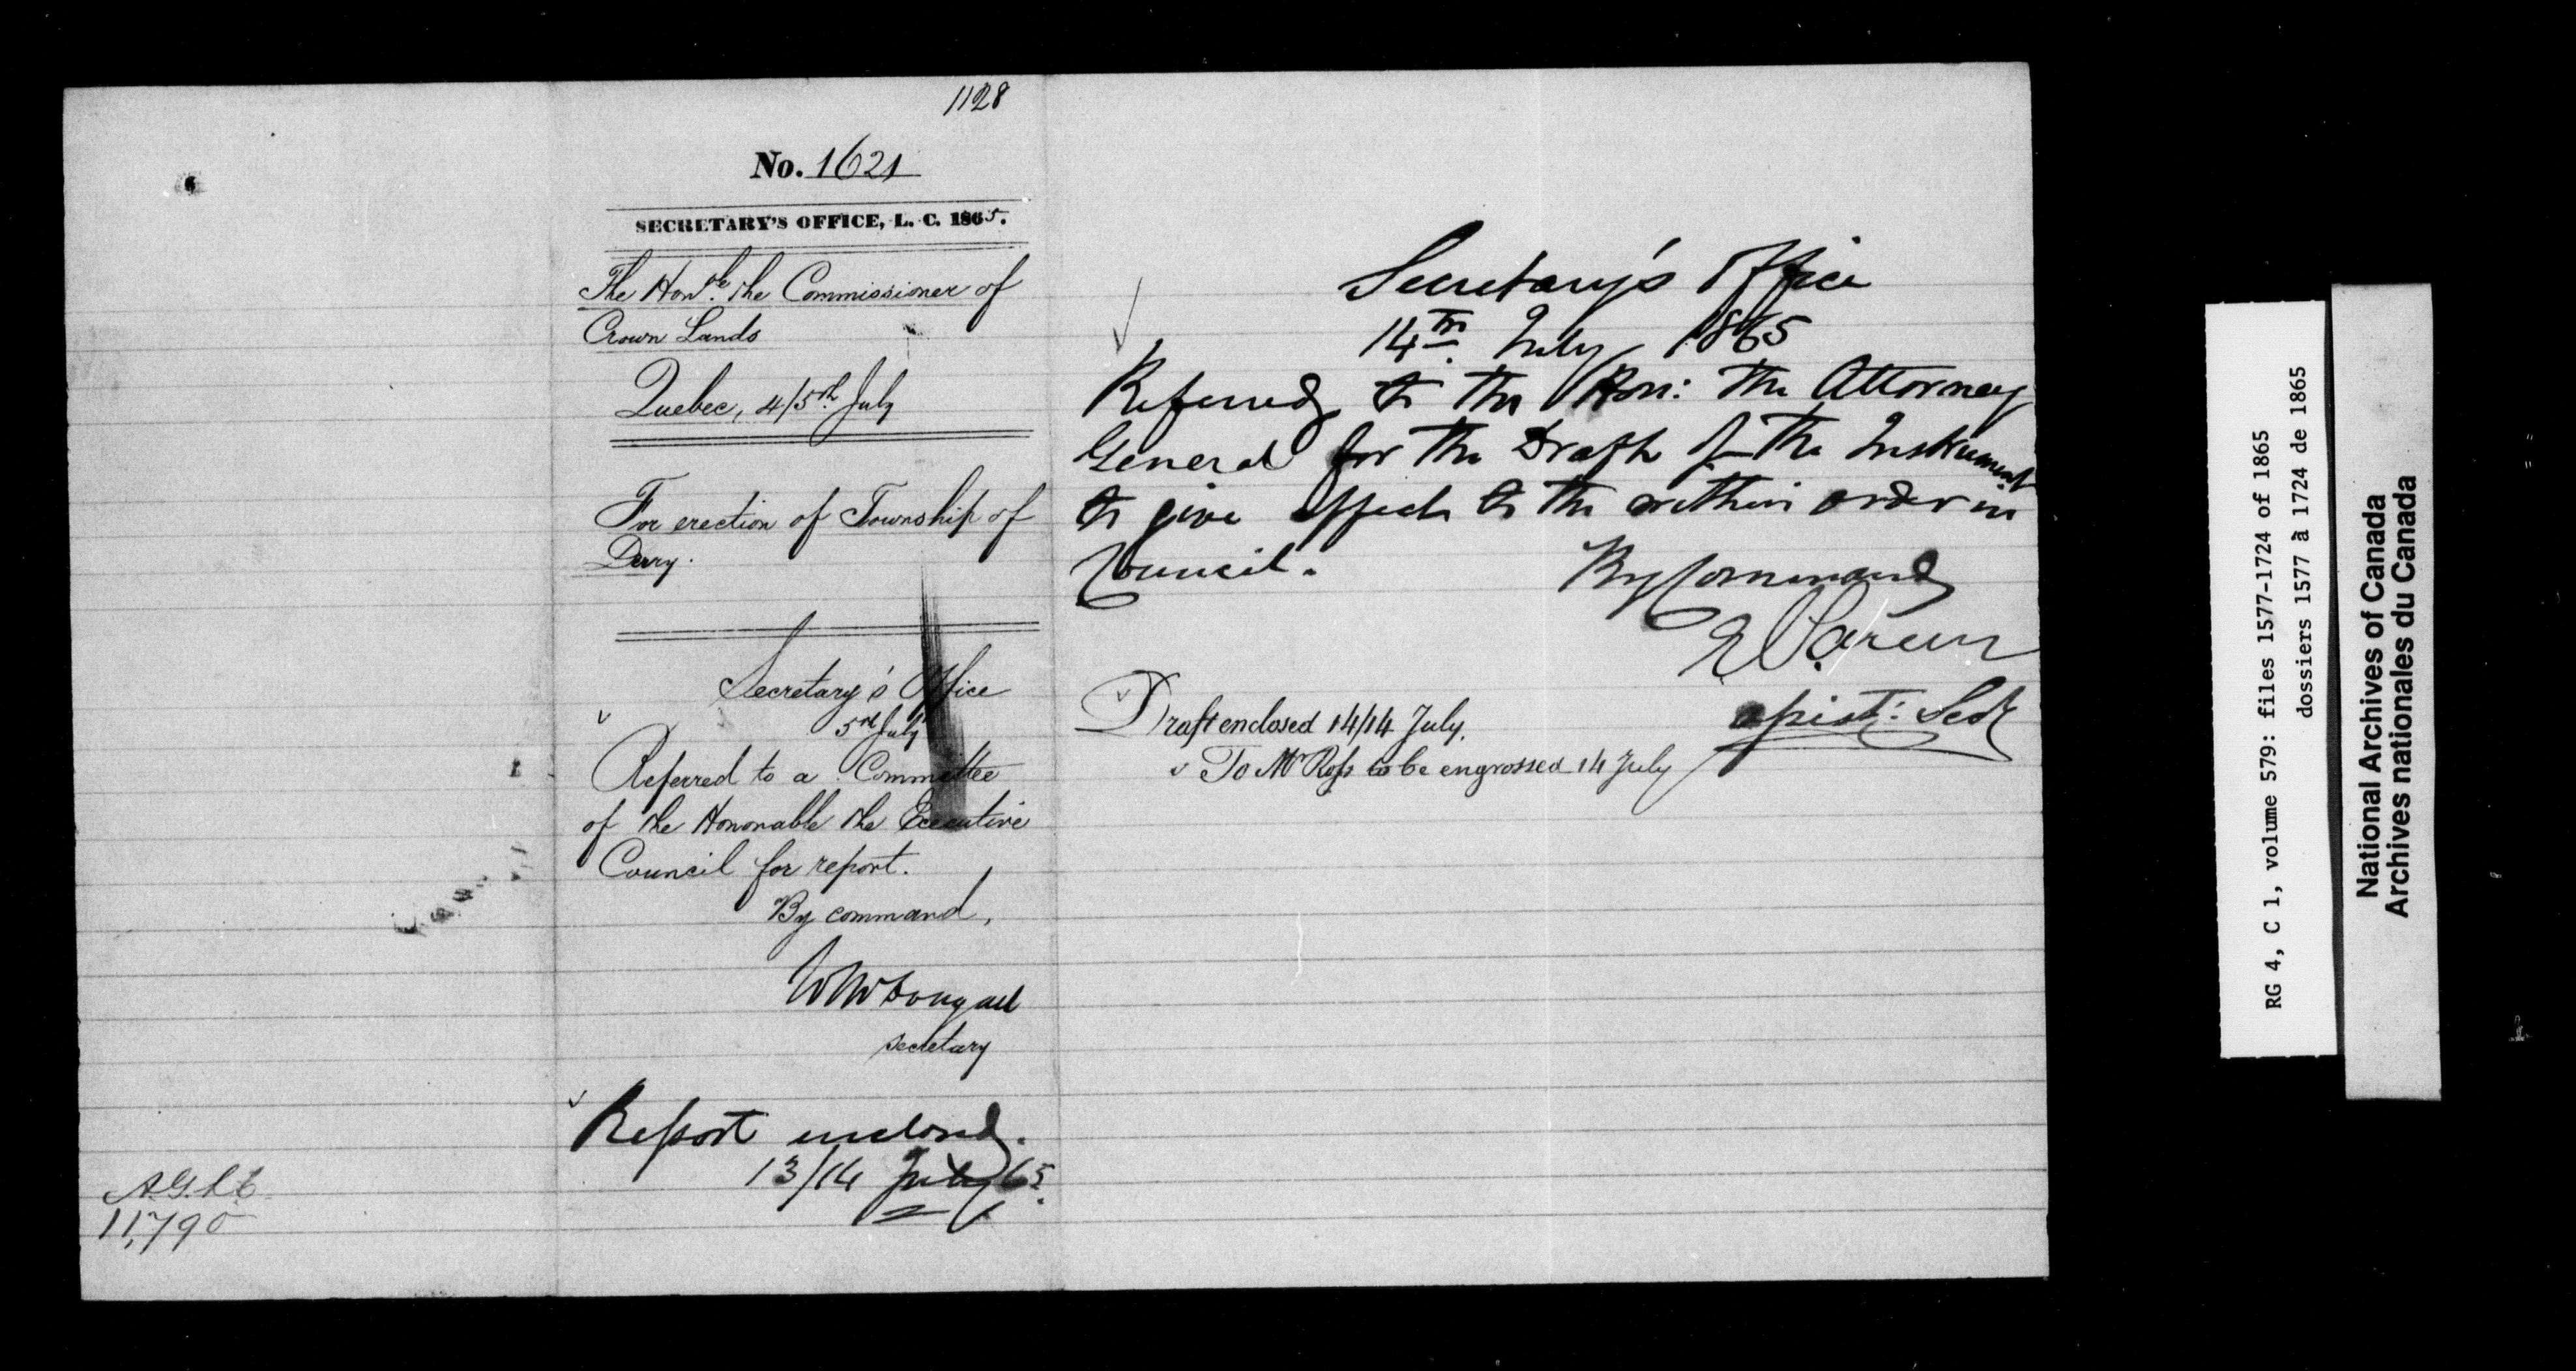 1128
No. 1621
SECRETARY'S OFFICE, L. C. 1865.
The Honble. the Commissioner of
Crown Lands
Quebec, 4/5th July
For erection of Township of
Derry.
Secretary's Office
5th July
Referred to a Committee
of the Honorable the Executive
Council for report.
By command,
WMcDougall
secretary
Report enclosed.
13/14 July 65.
A.G.L.C
11,790
Secretary's Office
14th. July 1865
Referred to the Hon: the Attorney
General for the Draft of the Instrument
to give effect to the within order in
Council.
By Command
E Parent
Draft enclosed 14/14 July.
assist: Secy
To Mr Ross to be engrossed 14 July
RG 4, C 1, volume 579: files 1577-1724 of 1865
dossiers 1577 à 1724 de 1865
National Archives of Canada
Archives nationales du Canada